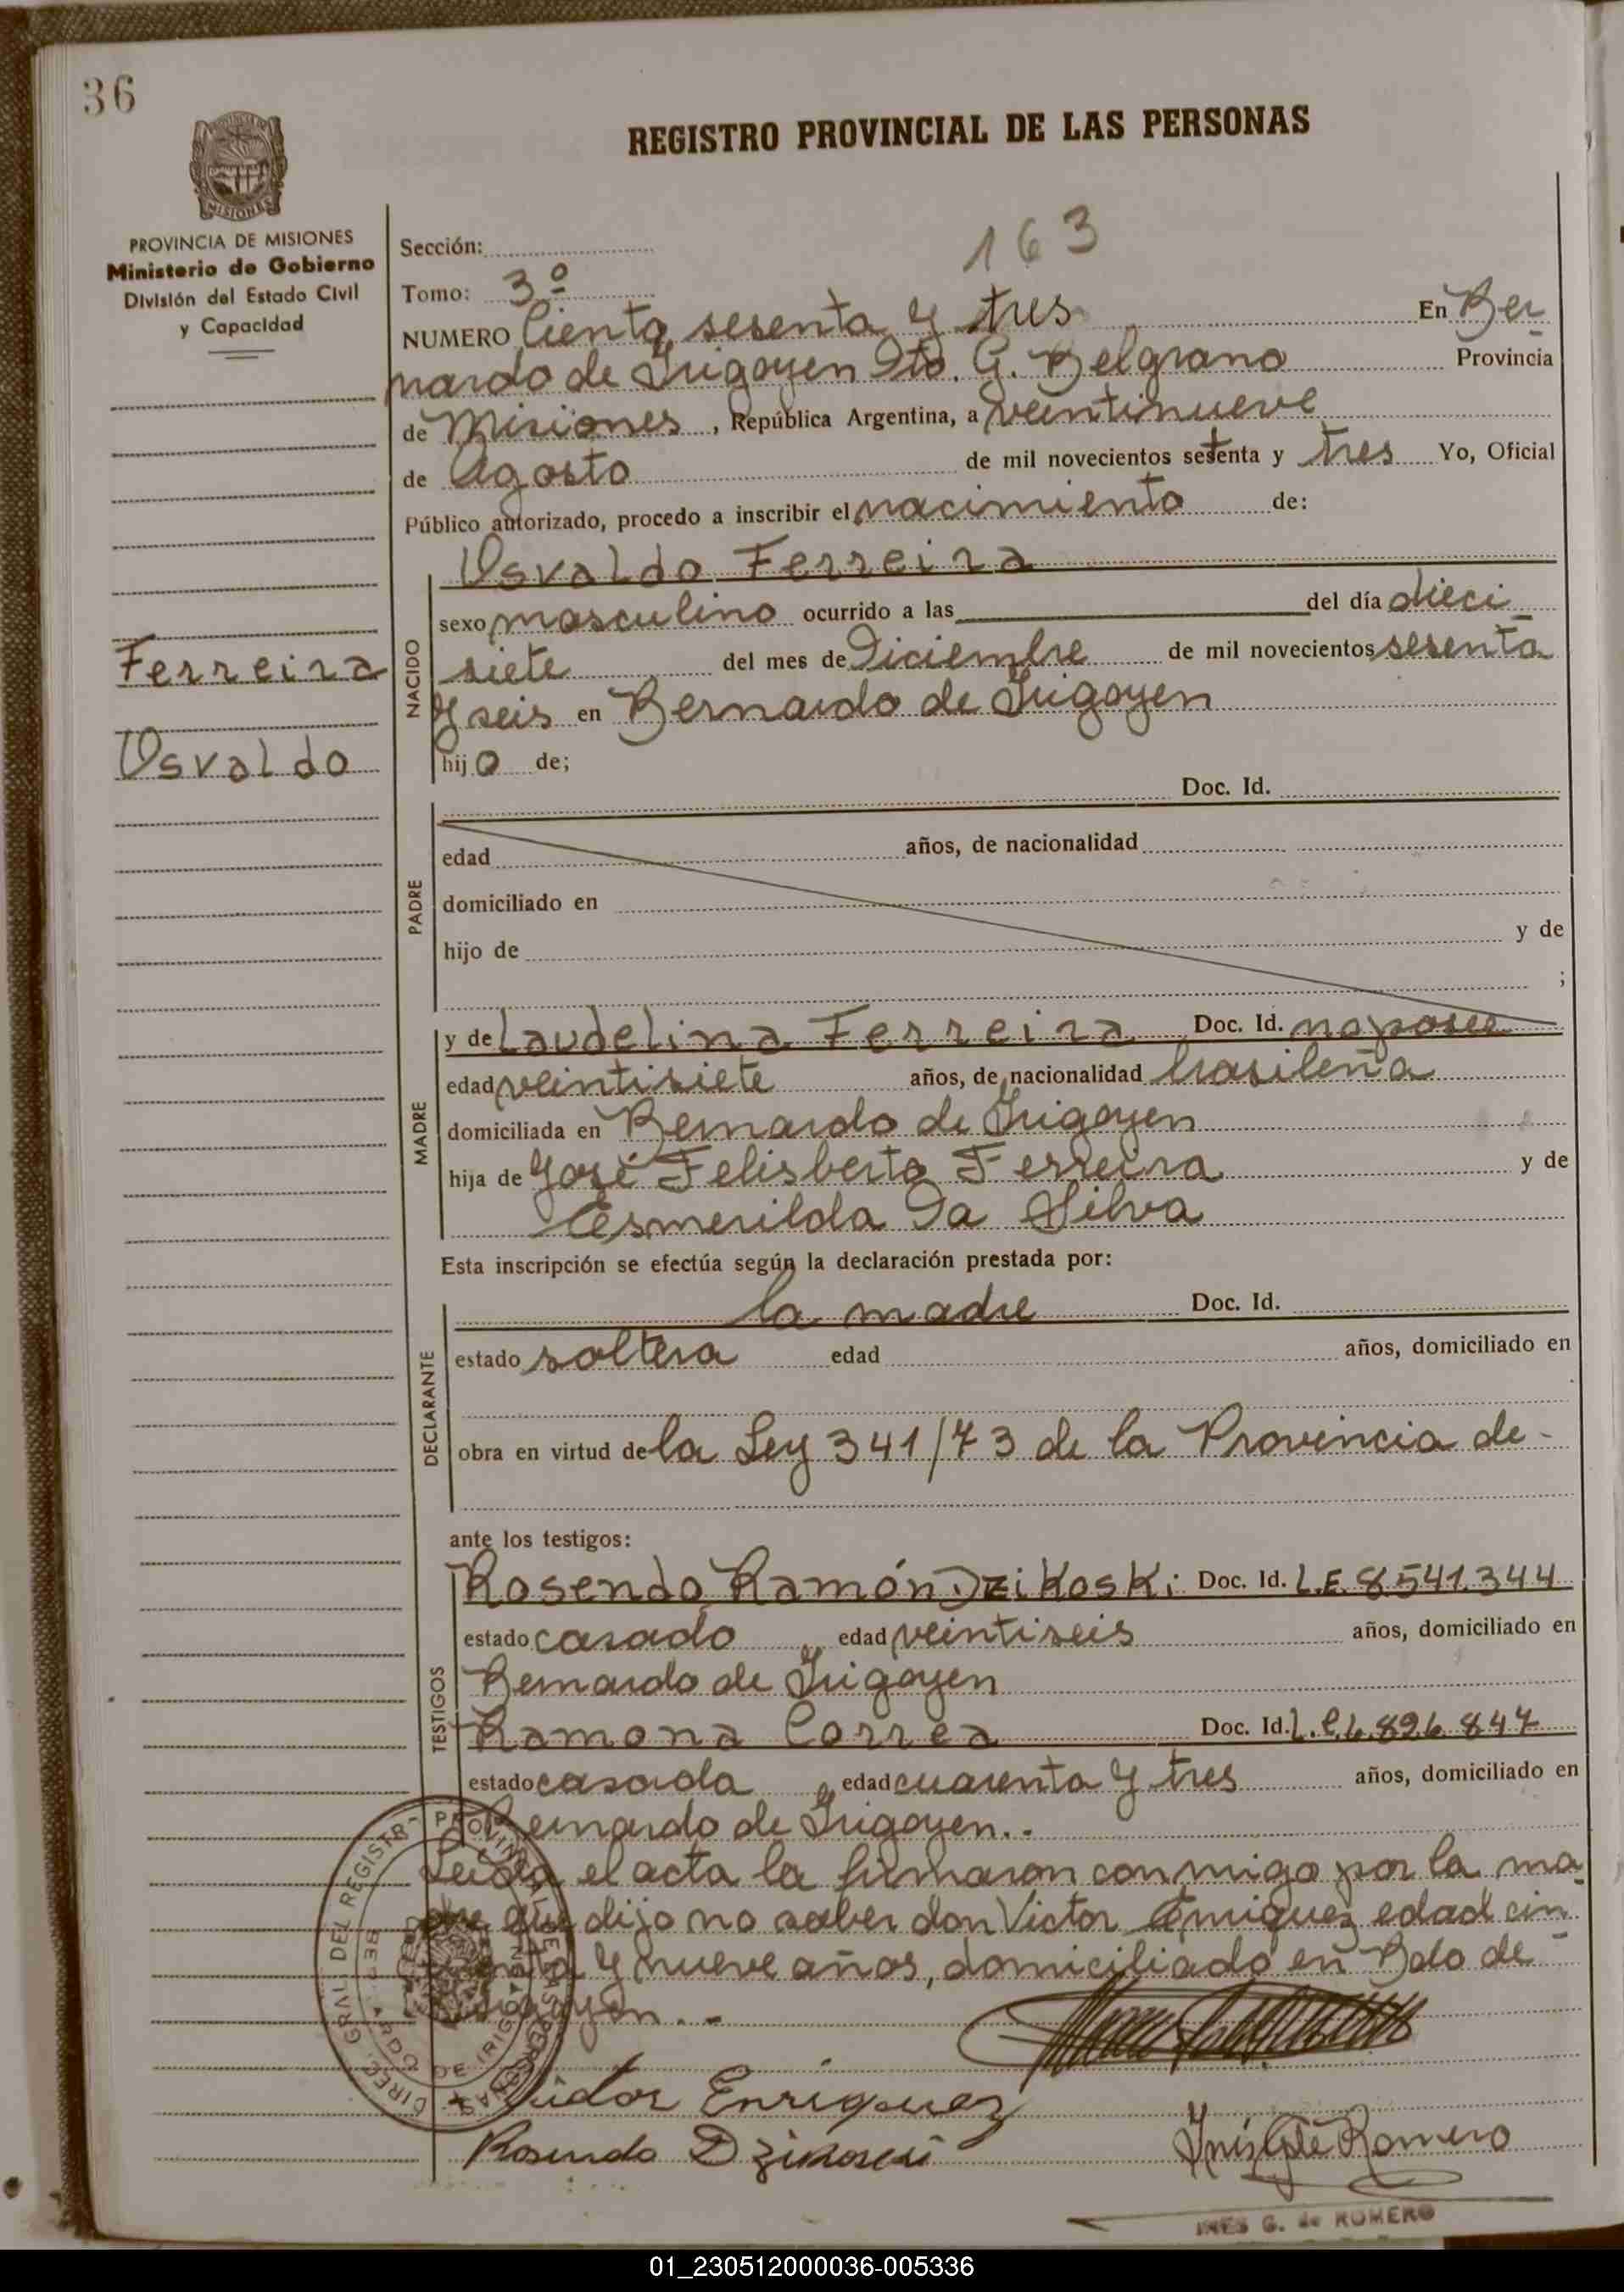 36
REGISTRO PROVINCIAL DE LAS PERSONAS
MISIONES
PROVINCIA DE MISIONES
Ministerio de Gobierno
División del Estado Civil
y Capacidad
163
Sección:
Tomo: 3º
NUMERO Ciento sesenta y tres En Ber
nardo de Irigoyen Dto. G. Belgrano Provincia
de Misiones, República Argentina, a veintinueve
de Agosto de mil novecientos setenta y tres Yo, Oficial
Público autorizado, procedo a inscribir el nacimiento de:
Osvaldo Ferreira
Ferreira
Osvaldo
NACIDO
sexo masculino ocurrido a las del día dieci
siete del mes de Diciembre de mil novecientos sesenta
y seis en Bernardo de Irigoyen
hijo de;
PADRE
Doc. Id.
edad años, de nacionalidad
domiciliado en
hijo de y de
;
MADRE
y de Laudelina Ferreira Doc. Id. no posee
edad veintisiete años, de nacionalidad brasileña
domiciliada en Bernardo de Irigoyen
hija de José Felisberto Ferreira y de
Esmerilda Da Silva
Esta inscripción se efectúa según la declaración prestada por:
DECLARANTE
la madre Doc. Id.
estado soltera edad años, domiciliado en
obra en virtud de la Ley 341/73 de la Provincia de-
ante los testigos:
TESTIGOS
Rosendo Ramón Dzikoski Doc. Id. L.E. 8541.344
estado casado edad veintiseis años, domiciliado en
Bernardo de Irigoyen
Ramona Correa Doc. Id. L.C.6.826.847
estado casada edad cuarenta y tres años, domiciliado en
Bernardo de Irigoyen..
Leída el acta la firmaron conmigo por la ma
dre que dijo no saber don Victor Enriquez edad cin
cuenta y nueve años, domiciliado en Bdo de
Irigoyen..-
DIREC. GRAL. DEL REGISTRO PROVINCIAL DE LAS PERSONAS
Victor Enriquez
Rosendo Dzikoski
Inés G de Romero
INES G. de ROMERO
01_230512000036-005336